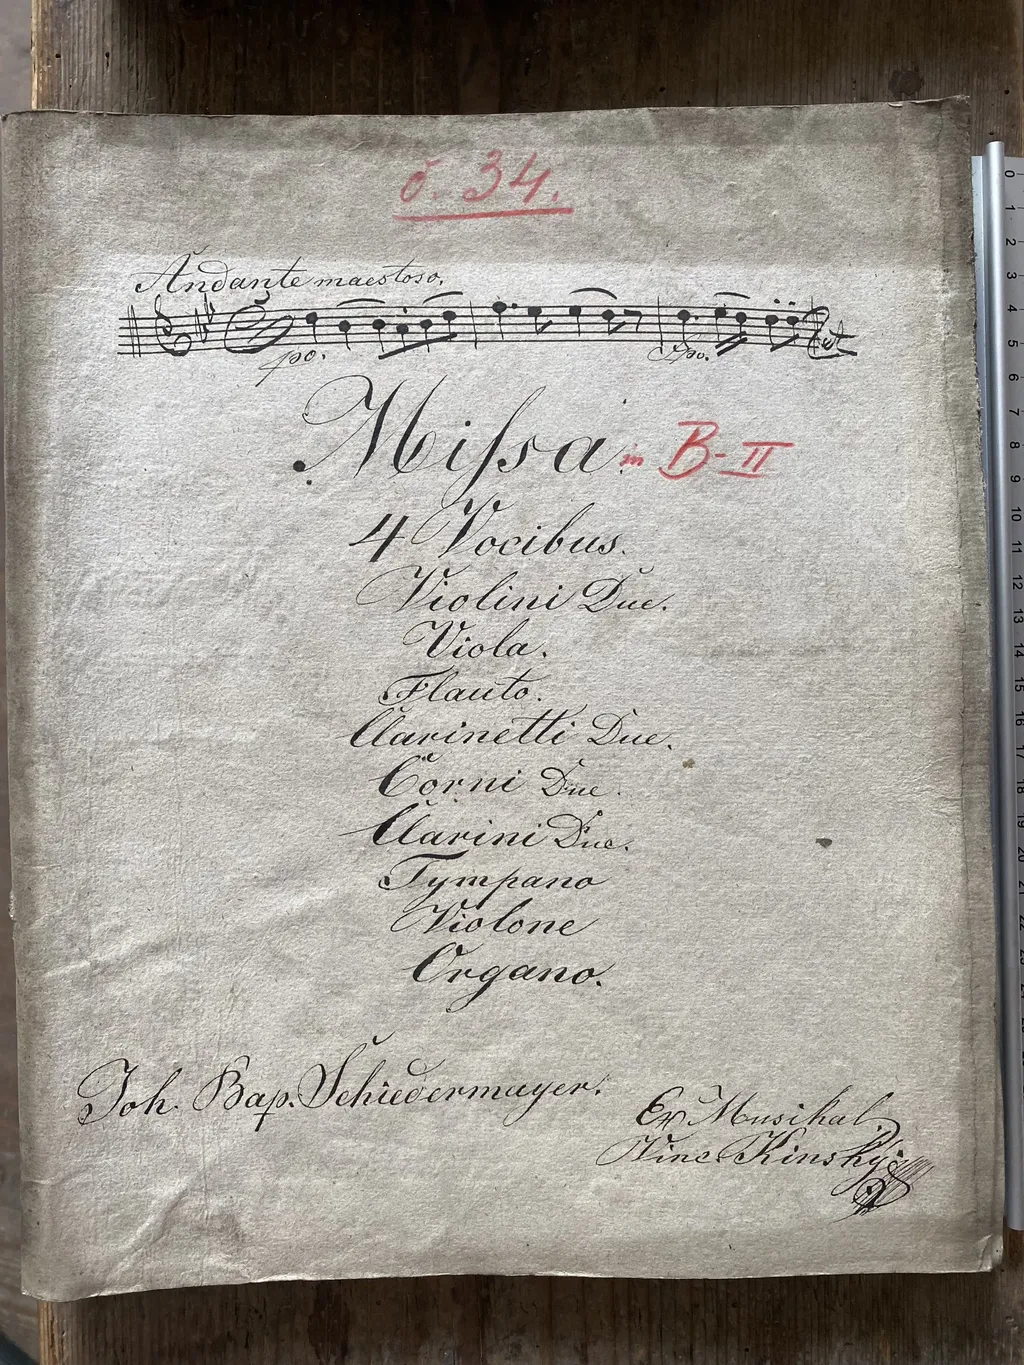 č. 34.
Andante maestoso.
po. po.
Missa. in B-II
4 Vocibus.
Violini Due.
Viola.
Flauto.
Clarinetti Due.
Corni Due.
Clarini Due.
Tympano
Violone
Organo.
Joh. Bap. Schiedermayer.
Ex Musikal.
Vinc. Kinský
0
1
2
3
4
5
6
7
8
9
10
11
12
13
14
15
16
17
18
19
20
21
22
23